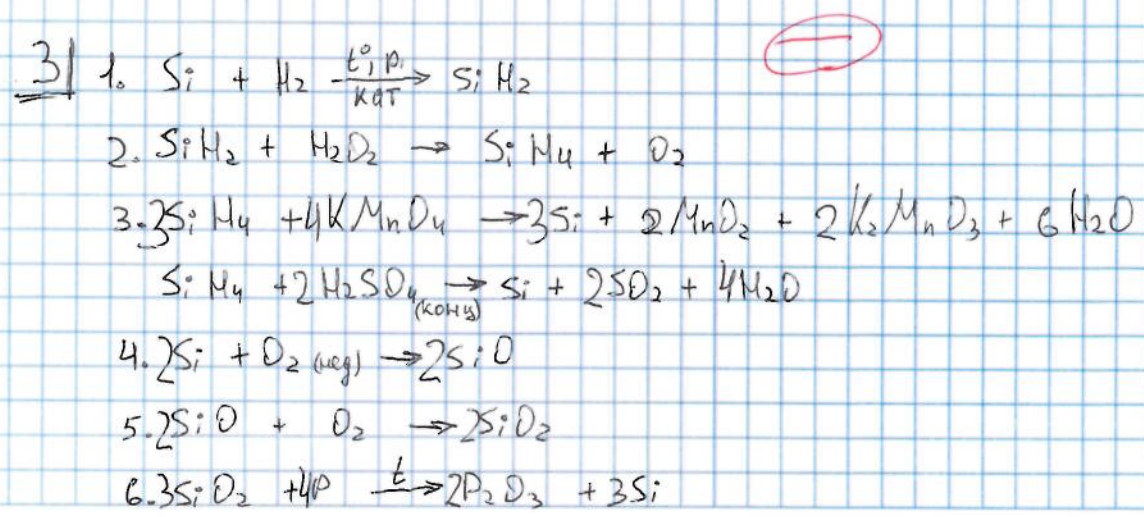 3| 1. Si + H₂ t°, p. кат → SiH₂
2. SiH₂ + H₂O₂ → SiH₄ + O₂
3. 3SiH₄ + 4KMnO₄ → 3Si + 2MnO₂ + 2K₂MnO₃ + 6H₂O
SiH₄ + 2H₂SO₄ (конц) → Si + 2SO₂ + 4H₂O
4. 2Si + O₂ (нед) → 2SiO
5. 2SiO + O₂ → 2SiO₂
6. 3SiO₂ + 4P t → 2P₂O₃ + 3Si